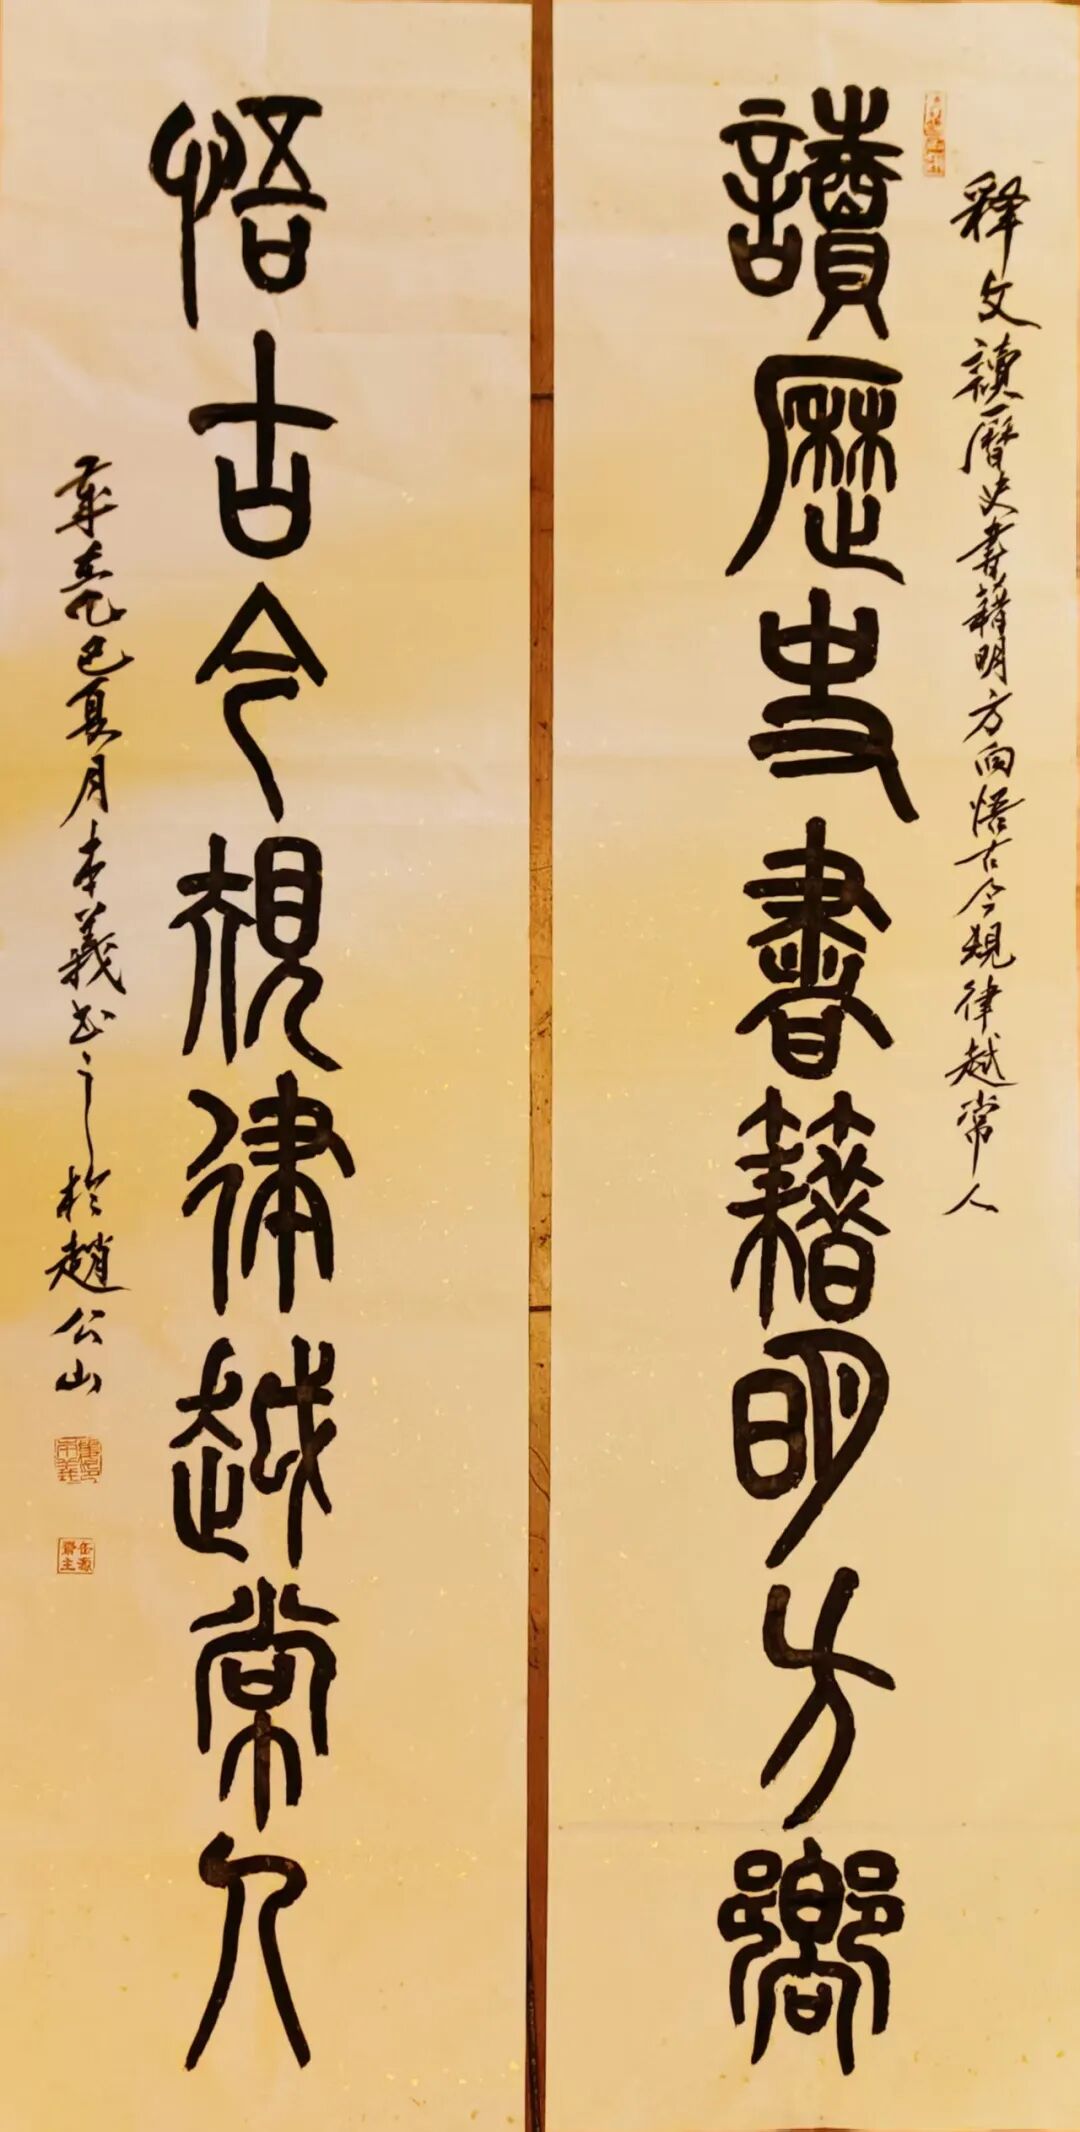 释文讀曆史書籍明方向悟古今規律越常人
讀歷史書籍明方嚮
悟古今規律越常人
歲在乙巳夏月本義书之於趙公山